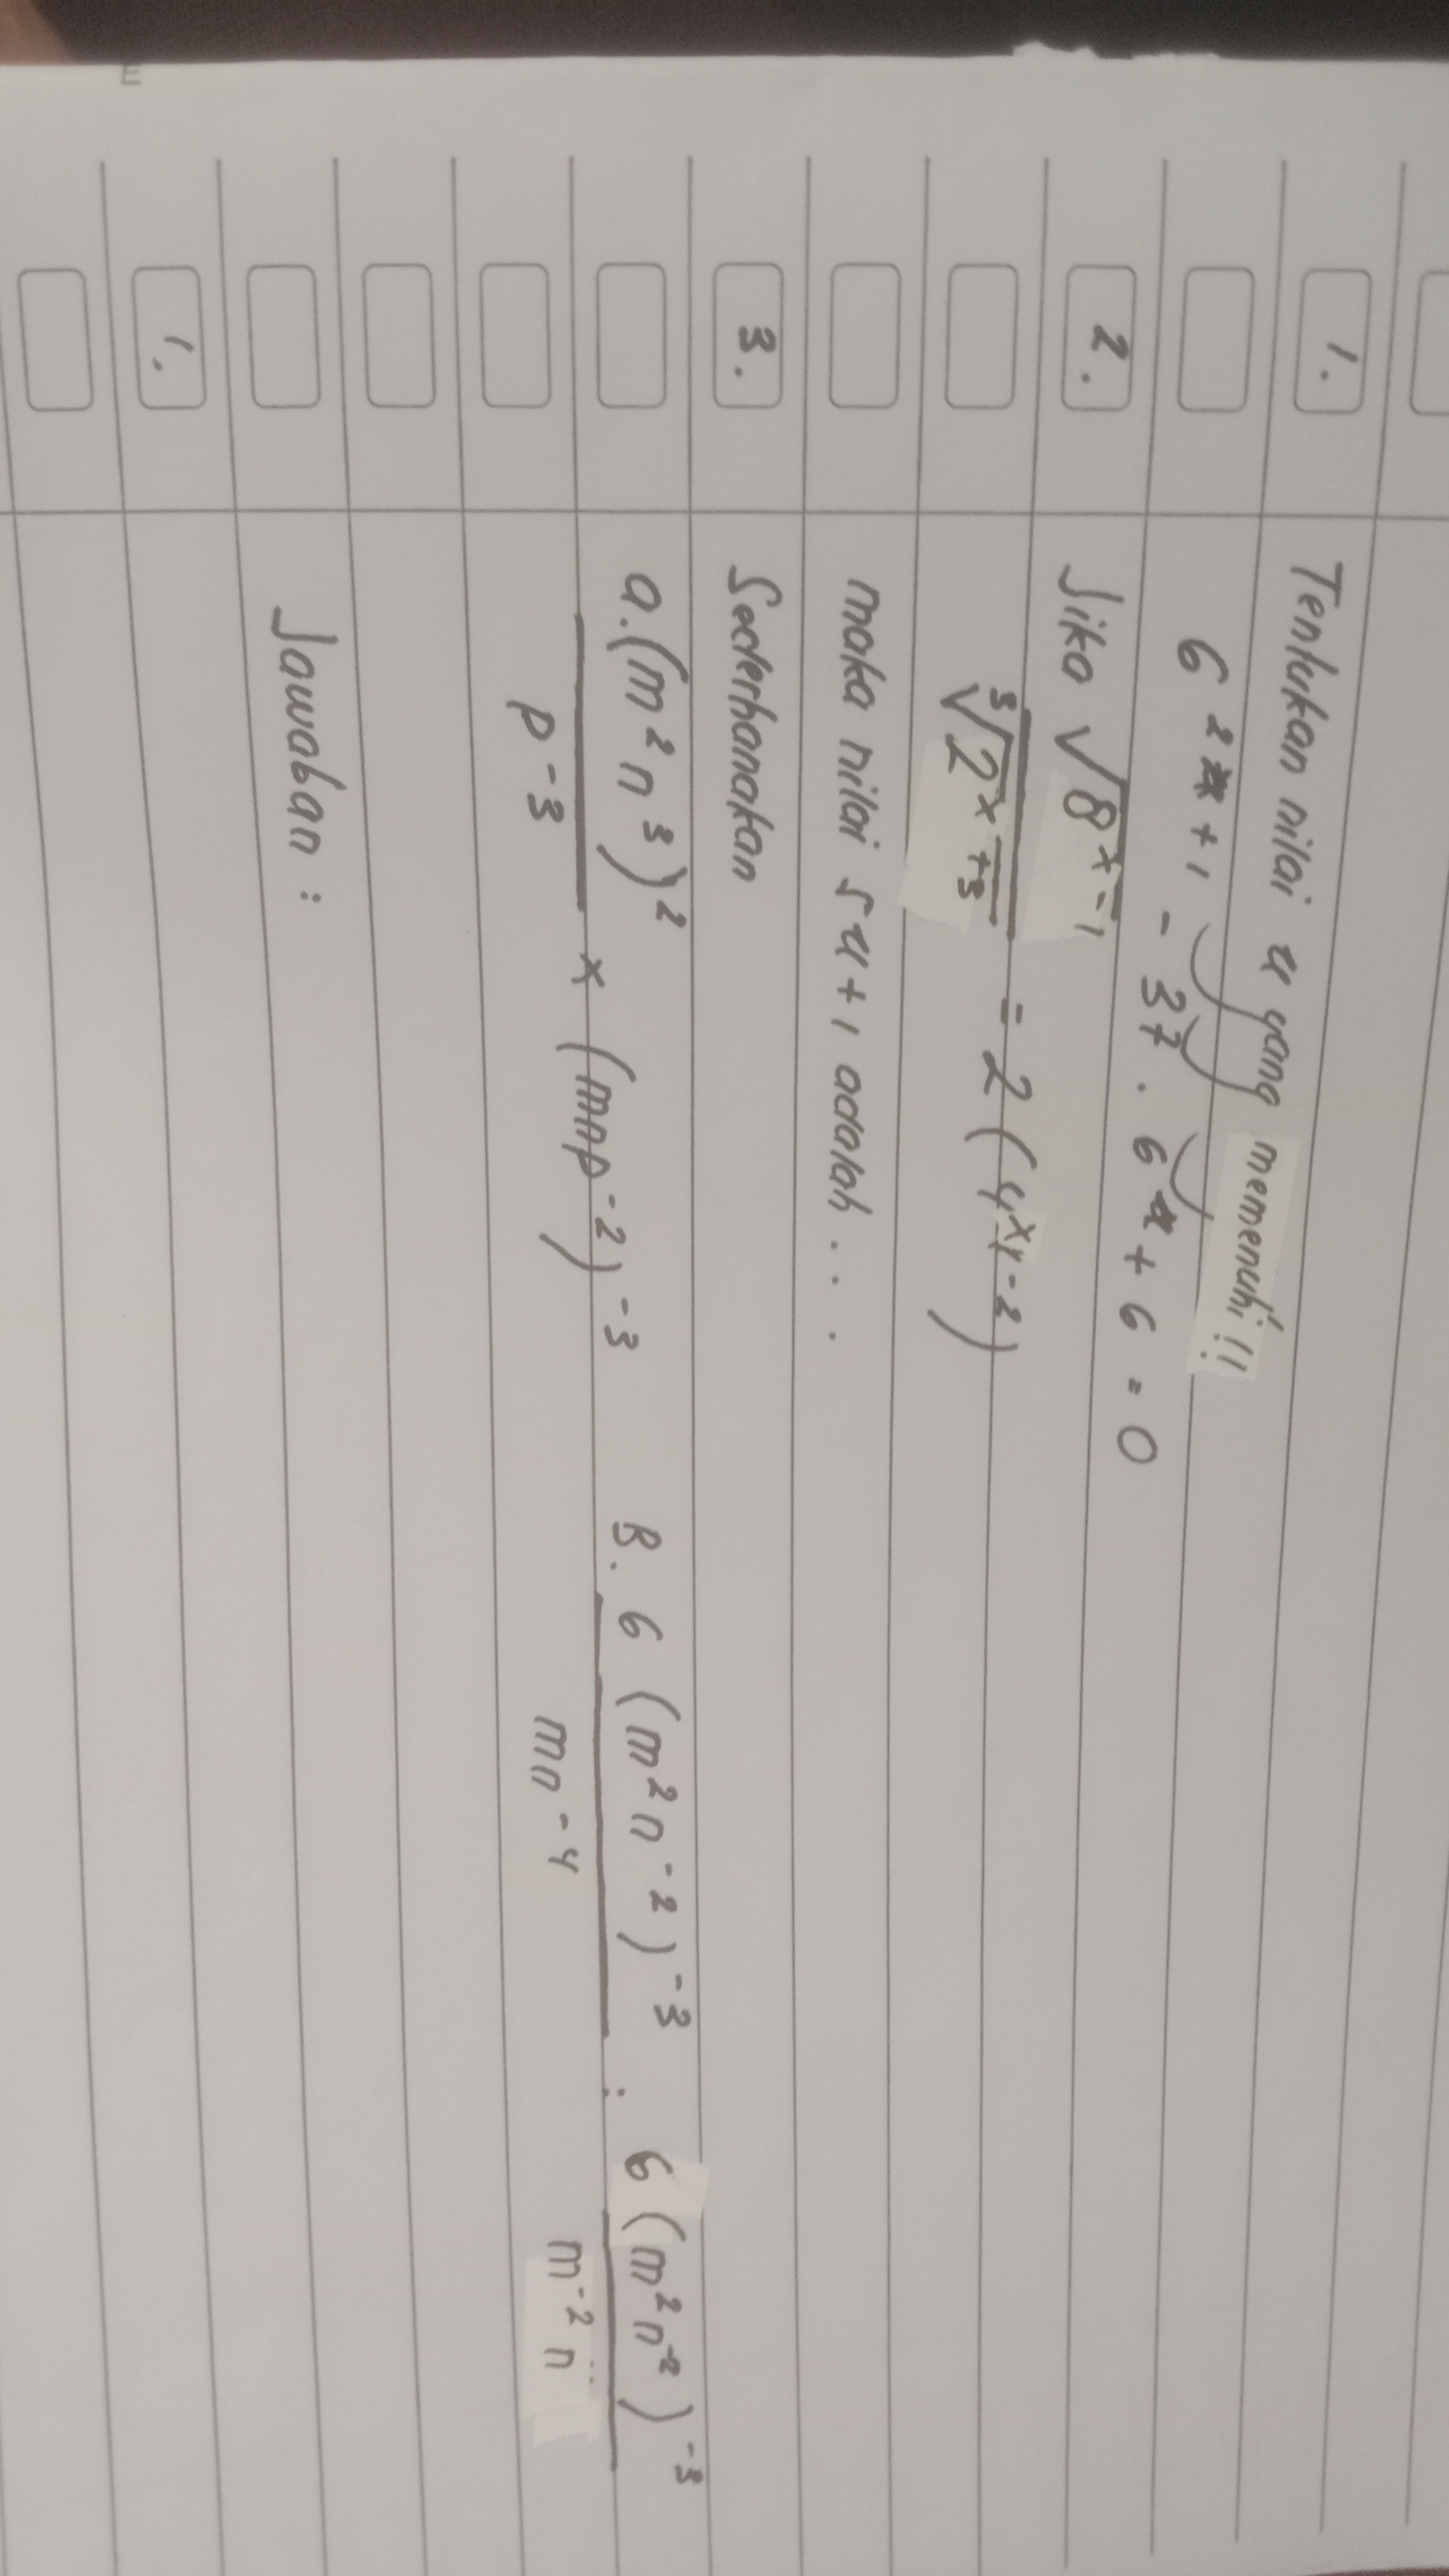 1. Tentukan nilai x yang memenuhi !!
6²ˣ + 1 - 37 . 6ˣ + 6 = 0
2. Jika √8ˣ⁻¹
³√2ˣ⁺³ = 2 (4ˣ⁻²)
maka nilai 5x + 1 adalah . . .
3. Sederhanakan
a. (m²n³)² B. 6 (m²n⁻²)⁻³ : 6 (m²n⁻²)⁻³
× (mnp⁻²)⁻³
p⁻³ mn⁻⁴ m⁻²n
Jawaban :
1.